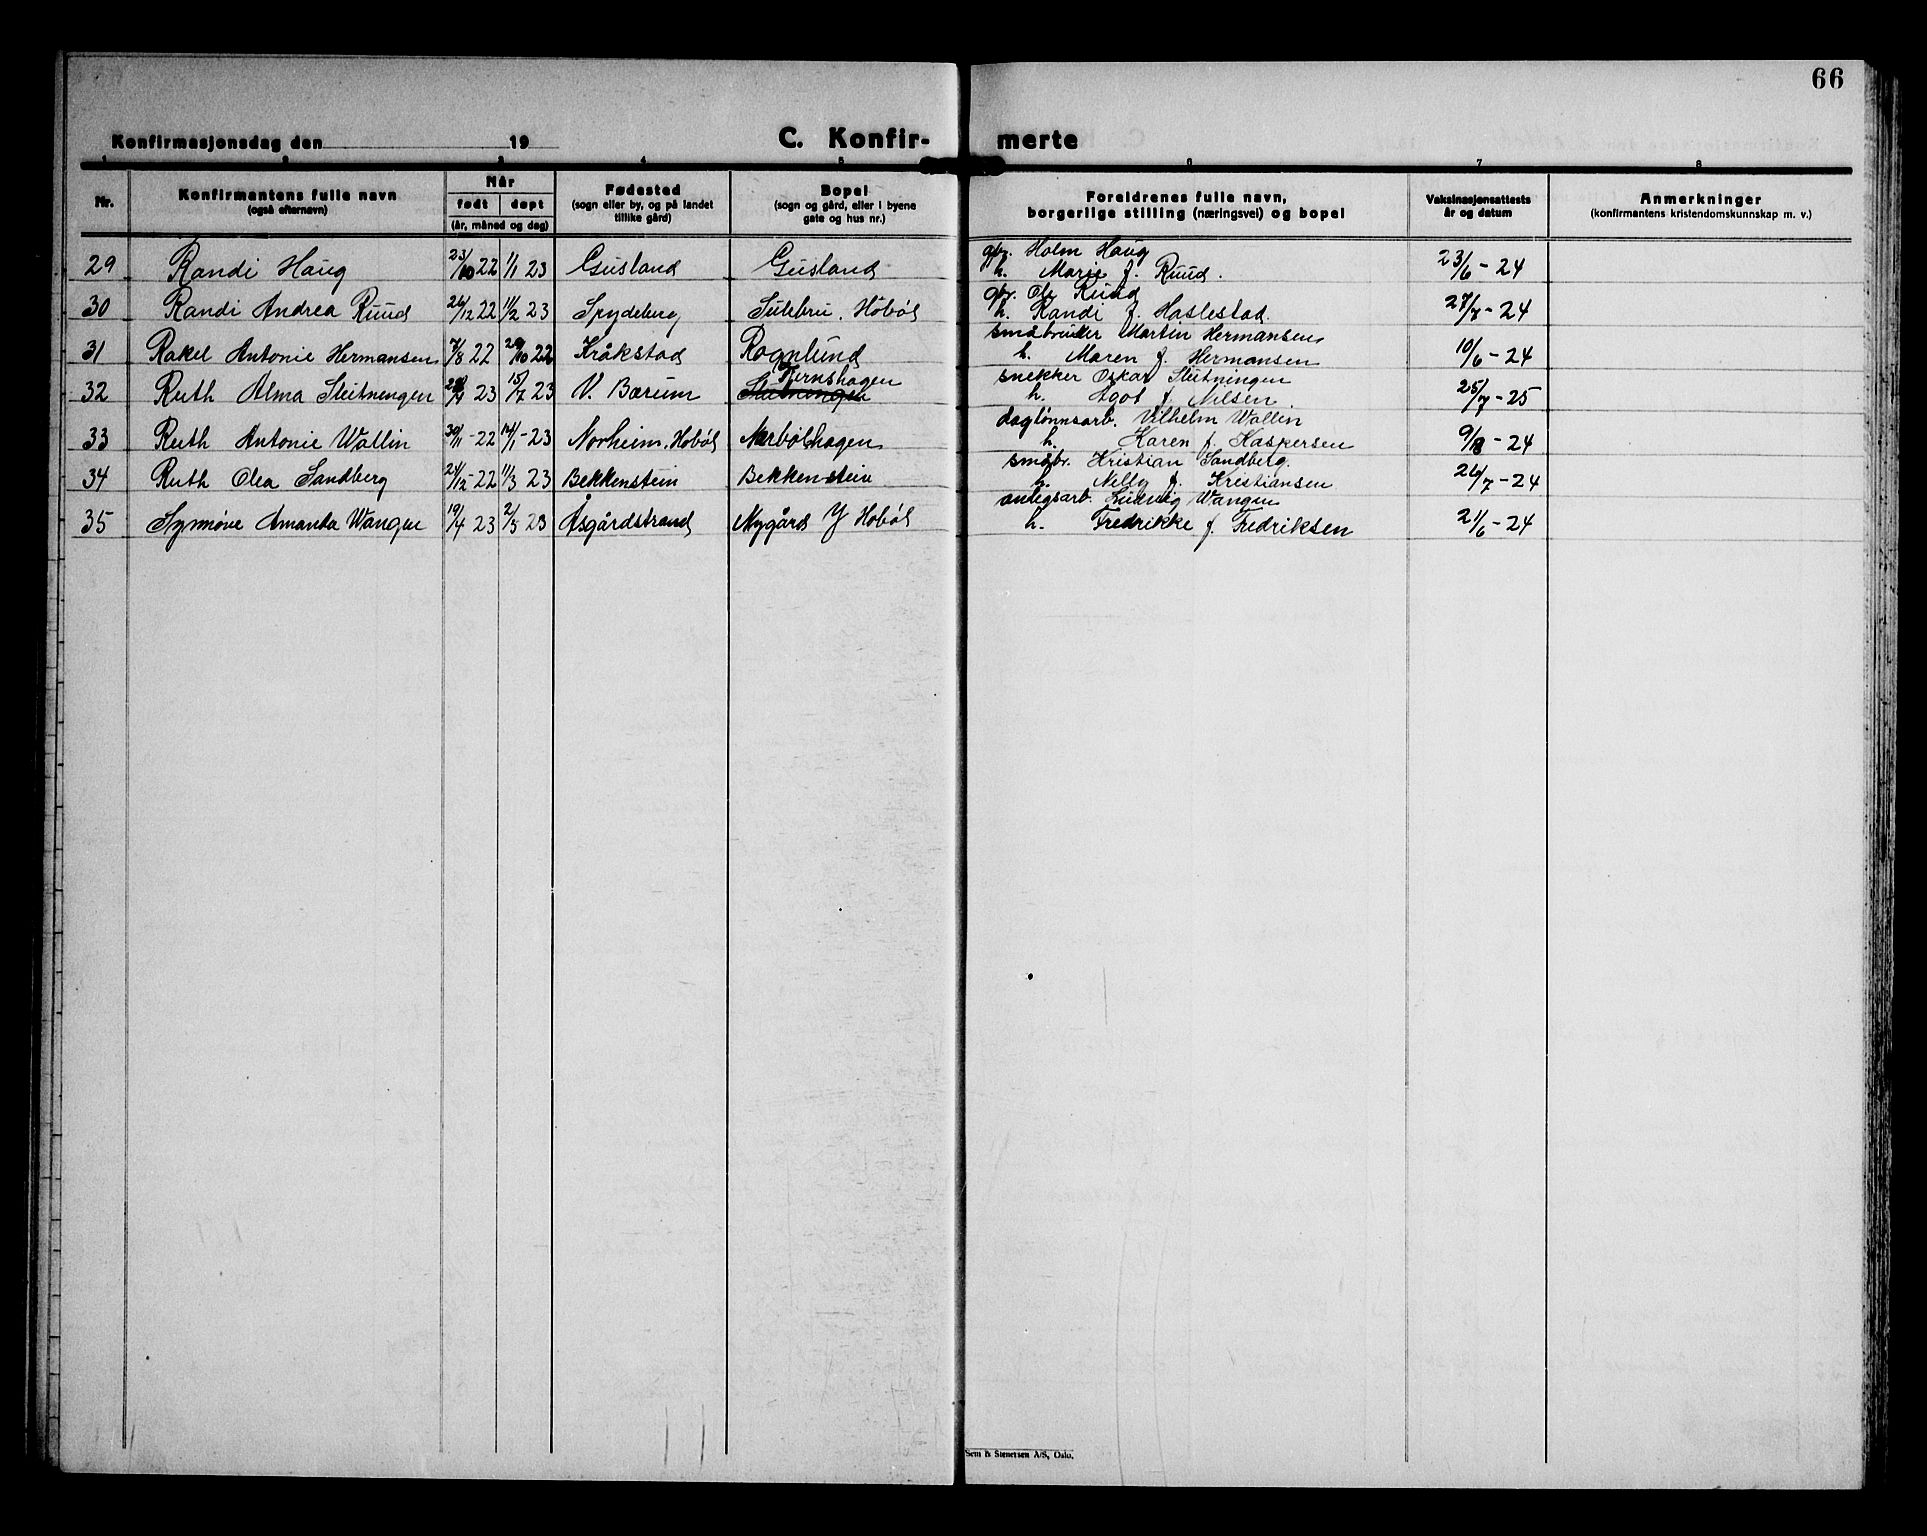 66
Konfirmasjonsdag den 19
C. Konfir-
merte
1 2 3 4 5 6 7 8
Nr. Konfirmantens fulle navn Når Fødested Bopel Foreldrenes fulle navn, Vaksinasjonsattests Anmerkninger
(også efternavn) født døpt (sogn eller by, og på landet (sogn og gård, eller i byene borgerlige stilling (næringsvei) og bopel år og datum (konfirmantens kristendomskunnskap m. v.)
(år, måned og dag) tillike gård) gate og hus nr.)
gbr. Holm Haug
29 Randi Haug 23/10 22 1/1 23 Gusland Gusland h. Marie f. Ruud. 23/6 - 24
gbr. Ole Ruud
30 Randi Andrea Ruud 26/12 22 11/2 23 Spydeberg Sulebru. Hobøl h. Randi f. Haslestad. 27/7 - 24
småbruker Martin Hermansen
31 Rakel Antonie Hermansen 7/8 22 29/10 22 Kråkstad Rognlund h. Maren f. Hermansen 10/6 - 24
Ternshagen snekker Oskar Slitningen
32 Ruth Alma Slitningen 23 15/7 23 V. Bærum Slitningen h. Agot f. Nilsen. 25/7 - 25
daglønnsarb. Vilhelm Wallin
33 Ruth Antonie Wallin 30/11 - 22 14/1 - 23 Norheim. Hobøl Narbølhagen h. Karen f. Kaspersen 9/8 - 24
småbr. Kristian Sandberg.
34 Ruth Olea Sandberg 24/12 - 22 11/3 23 Bekkenstein Bekkenstein h. Nelly f. Kristiansen 26/7 - 24
anlegsarb. Ludvig Wangen
35 Synnøve Amanda Wangen 19/4 23 2/5 23 Åsgårdstrand Nygård Y Hobøl h. Fredrikke f. Fredriksen 21/6 - 24
Sem & Stenersen A/S, Oslo.